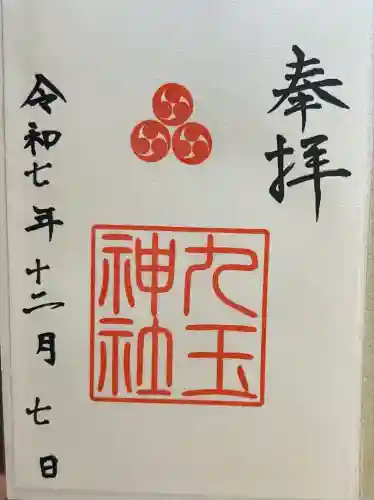 奉拝
九玉
神社
令和七年十二月七日